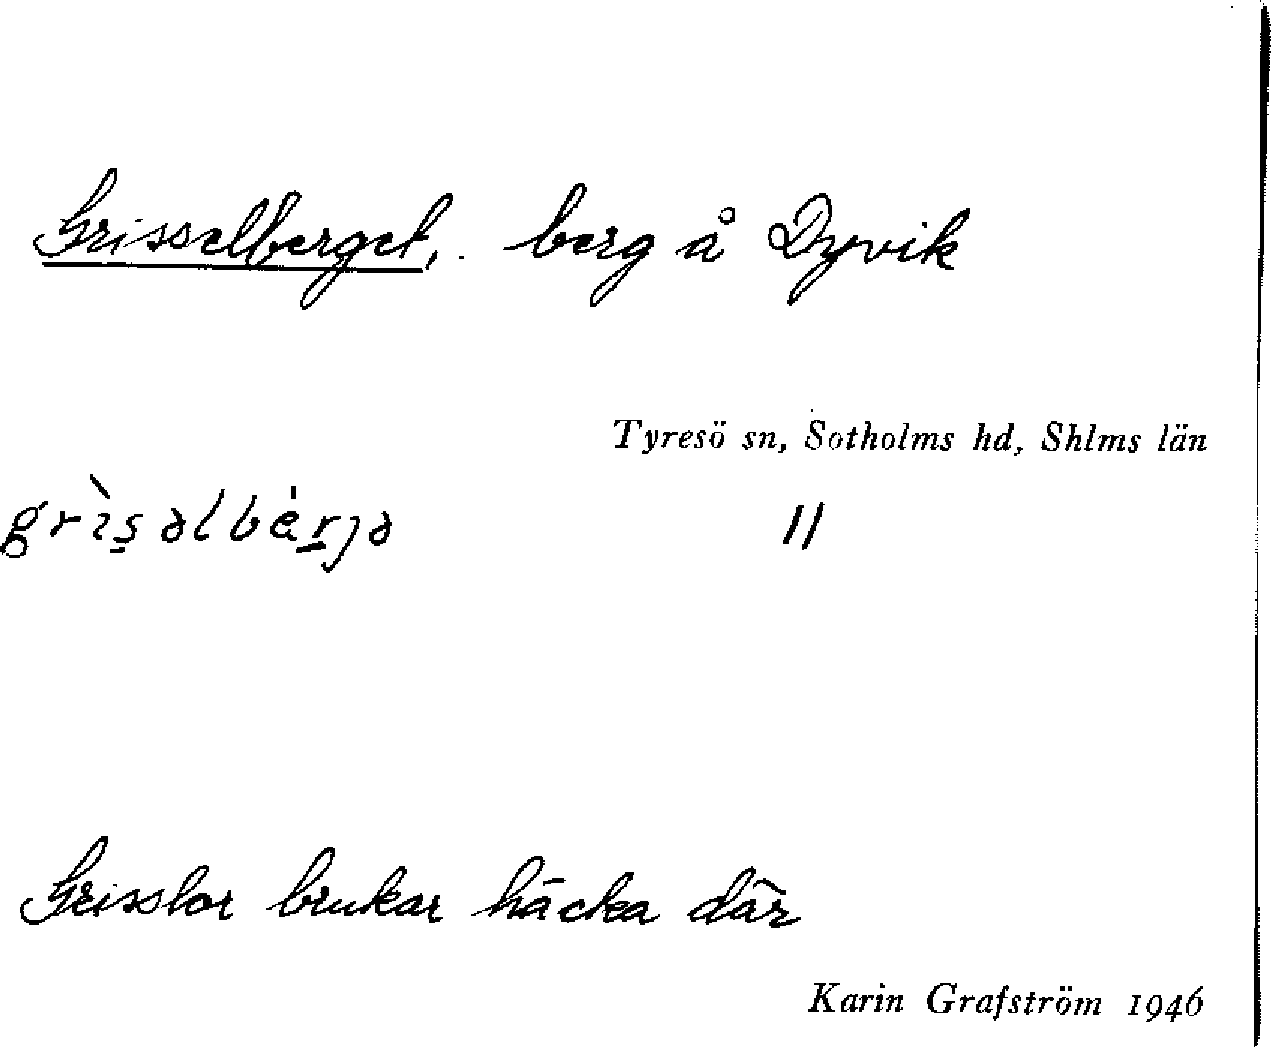 Grisselberget, berg å Dyvik
Tyresö sn, Sotholms hd, Shlms län
grìs̱əlbérjə //
Grisslor brukar häcka där
Karin Grafström 1946